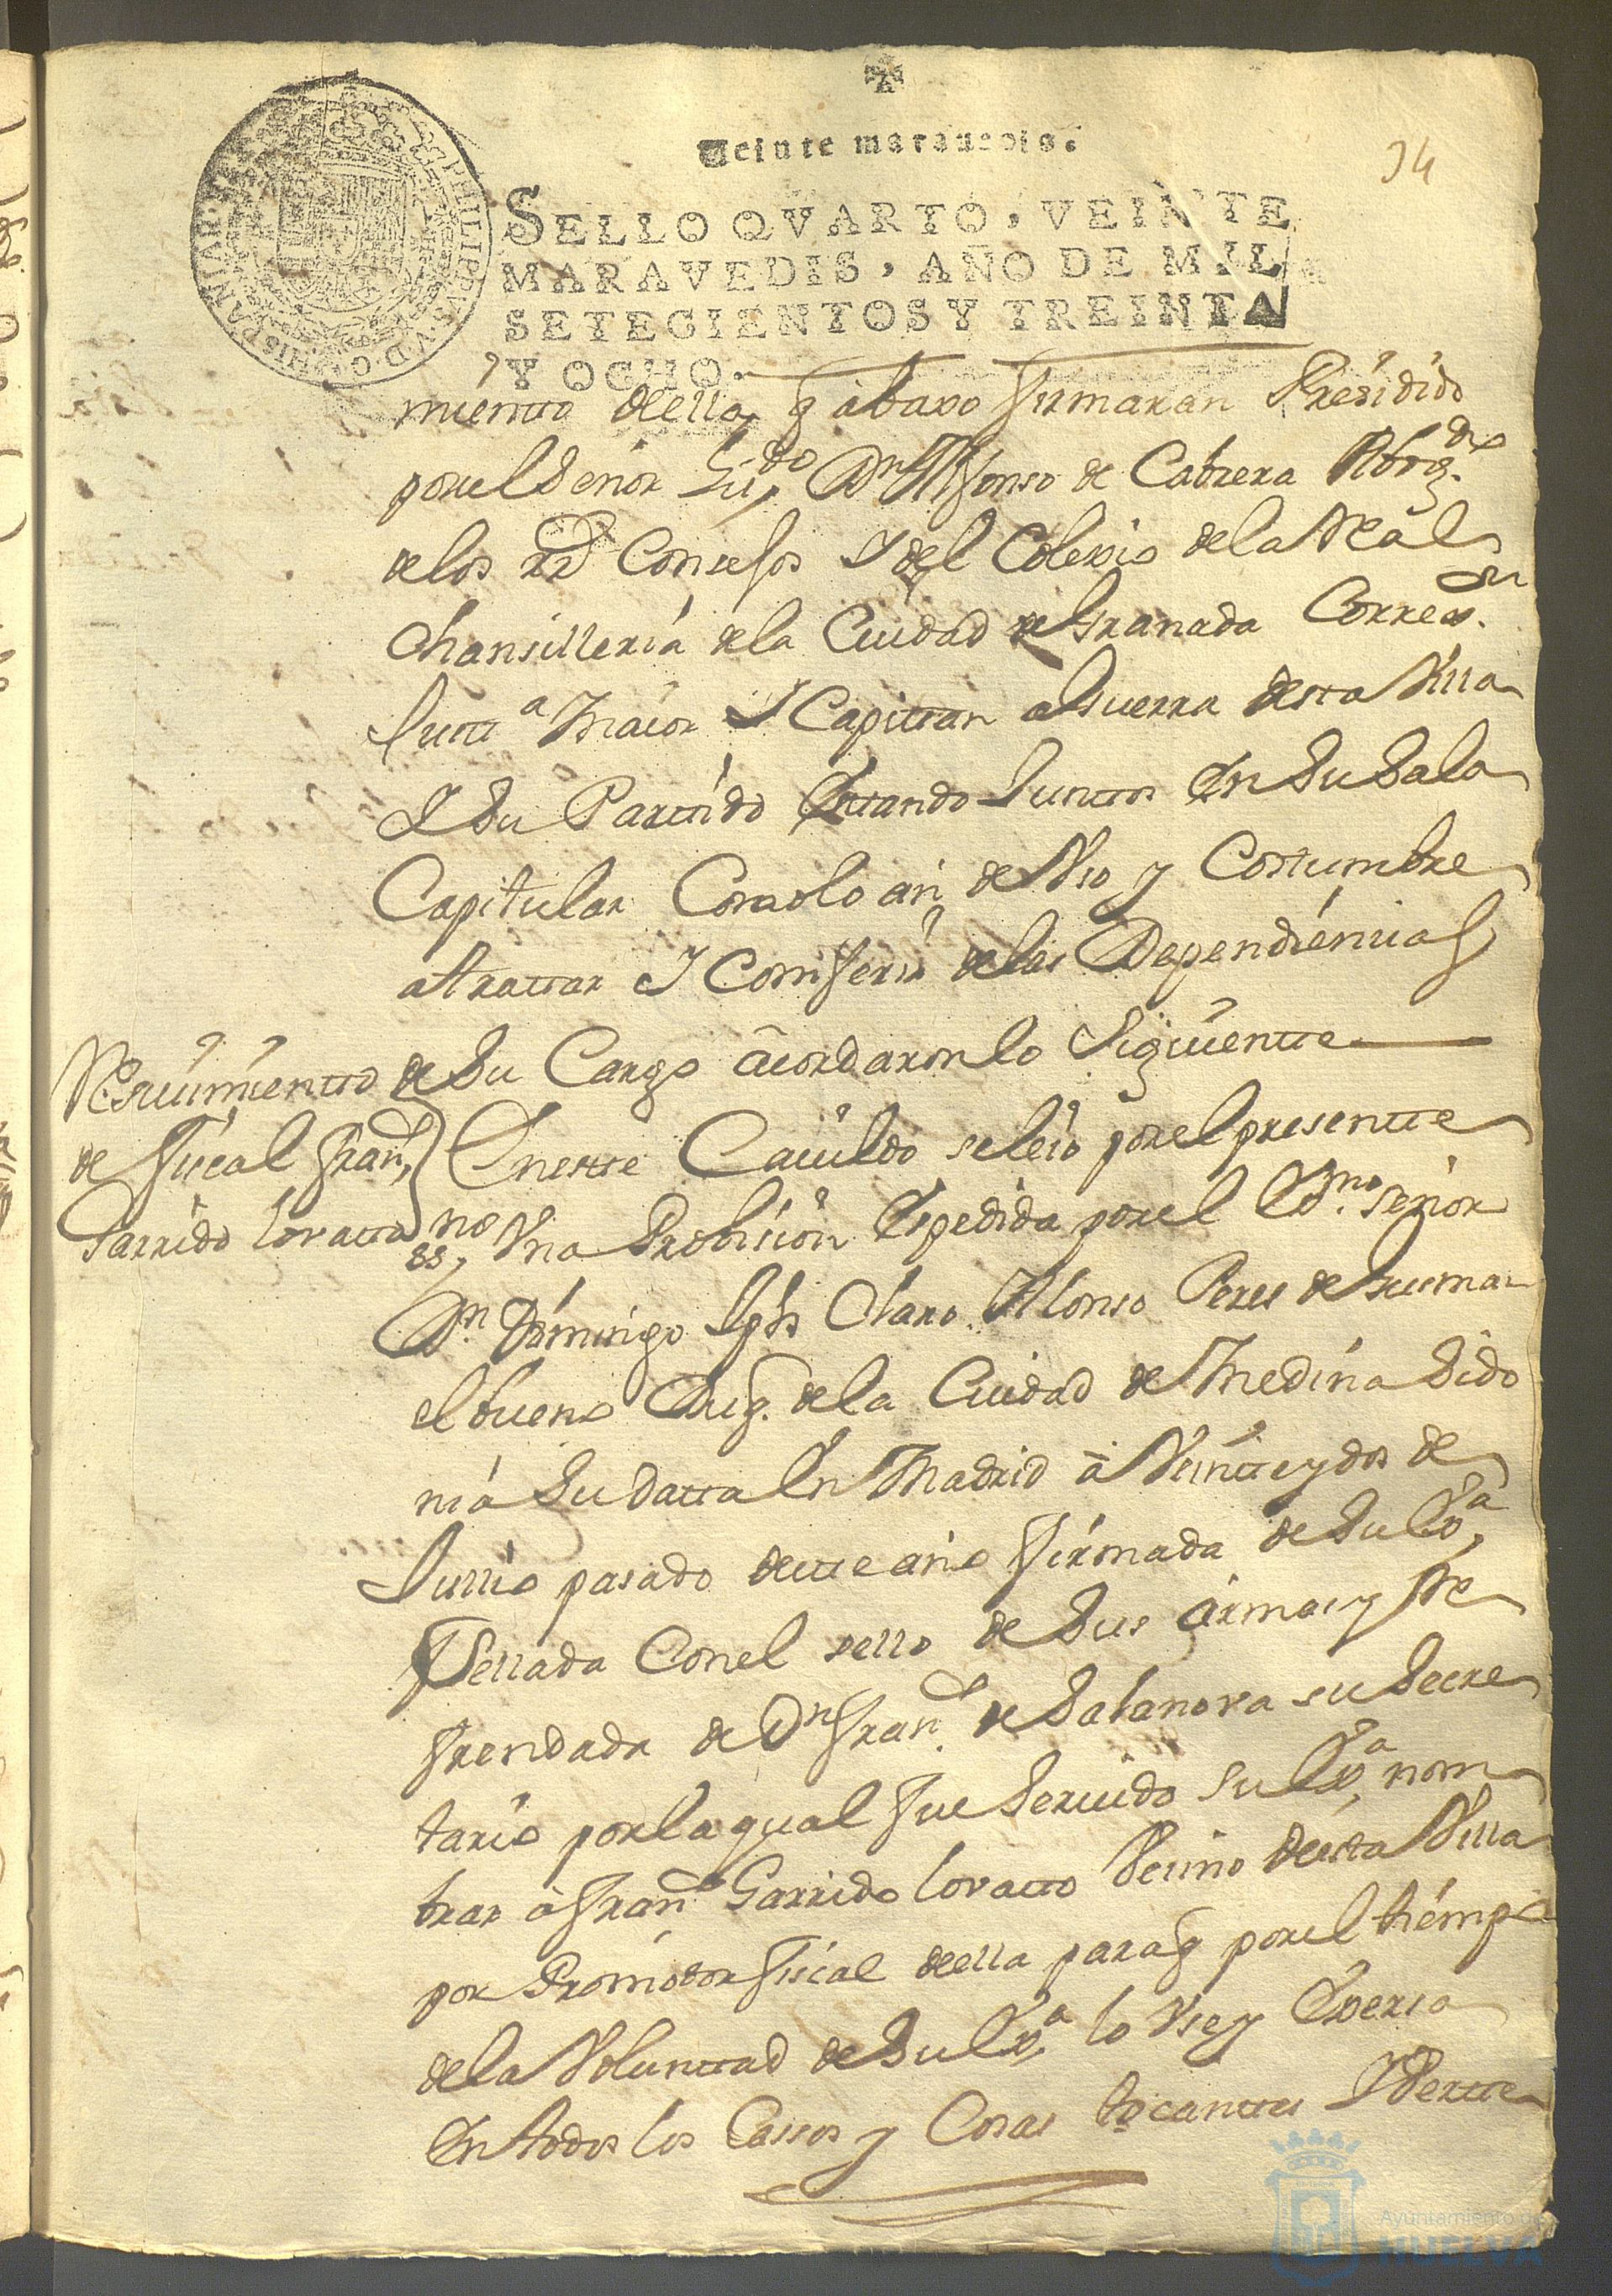 Veinte maravedis.
34
SELLO QVARTO, VEINTE
MARAVEDIS, AÑO DE MIL
SETECIENTOS Y TREINTA
Y OCHO.
PHILIPPVS V D G HISPANIAR
miento della, q abaxo firmaran Presidido
por el Señor Lizdo Dn Alfonso de Cabrera
de los Rs Consejos Y del Colexio de la Real
Chansilleria de la Ciudad de Granada Corregor
Justtia Maior Y Capittan a Guerra desta Villa
Y Su Partido Esttando Junttos En Su Sala
Capitular Como lo an de Uso y Costumbre
a trattar Y Conferir de las Dependiencias
de Su Cargo acordaron lo Siguientte
Resivimientto
de Fiscal Franco
Garrido Lovatto
En estte Cavildo se leio por el presentte
esno Una Probision Espedida por el Exmo señor
Dn Domingo Jph Claro Alonso Peres de Gusman
el bueno Duq. de la Ciudad de Medina Sido
nia Su datta En Madrid a Veintte y dos de
Junio pasado destte año firmada de Su Exa
Sellada Con el sello de Sus armas y Re
frendada de Dn Franco de Salanova su Secre
tario por la qual fue Servido Su Exa nom
brar a Franco Garrido Lovatto Vesino desta Villa
por Promotor fiscal della para q por el tiempo
de la Volunttad de Su Exa lo Use y Exersa
En todos los Cassos y Cosas tocanttes
Ayuntamiento de
HUELVA